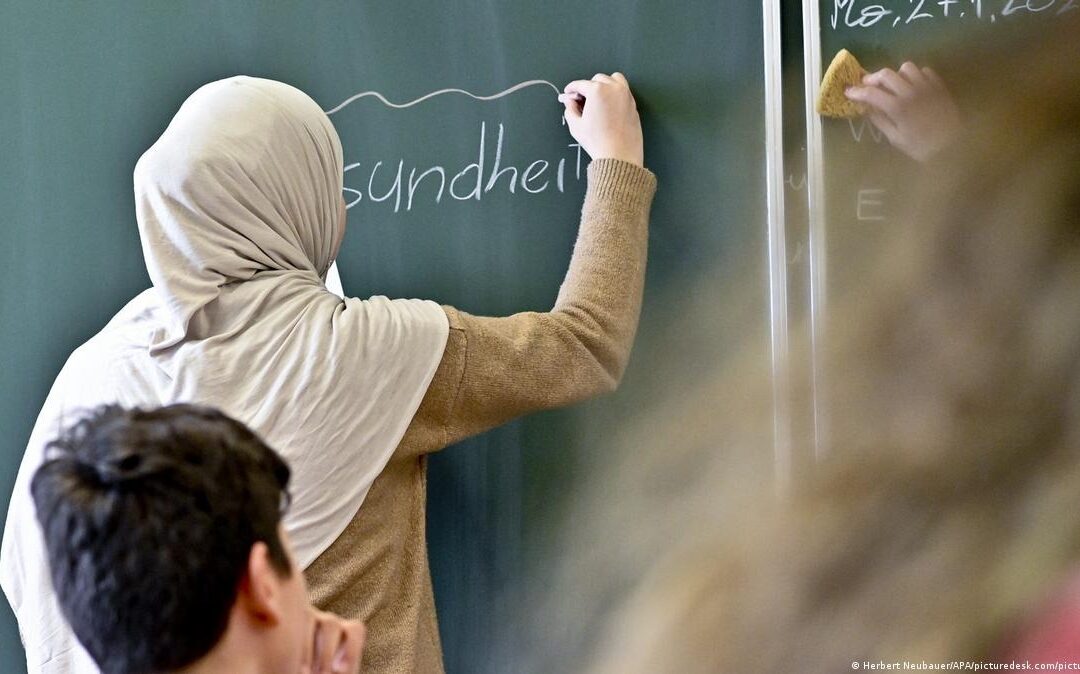 sundheit
Mo, 27.1, 202
W
E
© Herbert Neubauer/APA/picturedesk.com/pictu